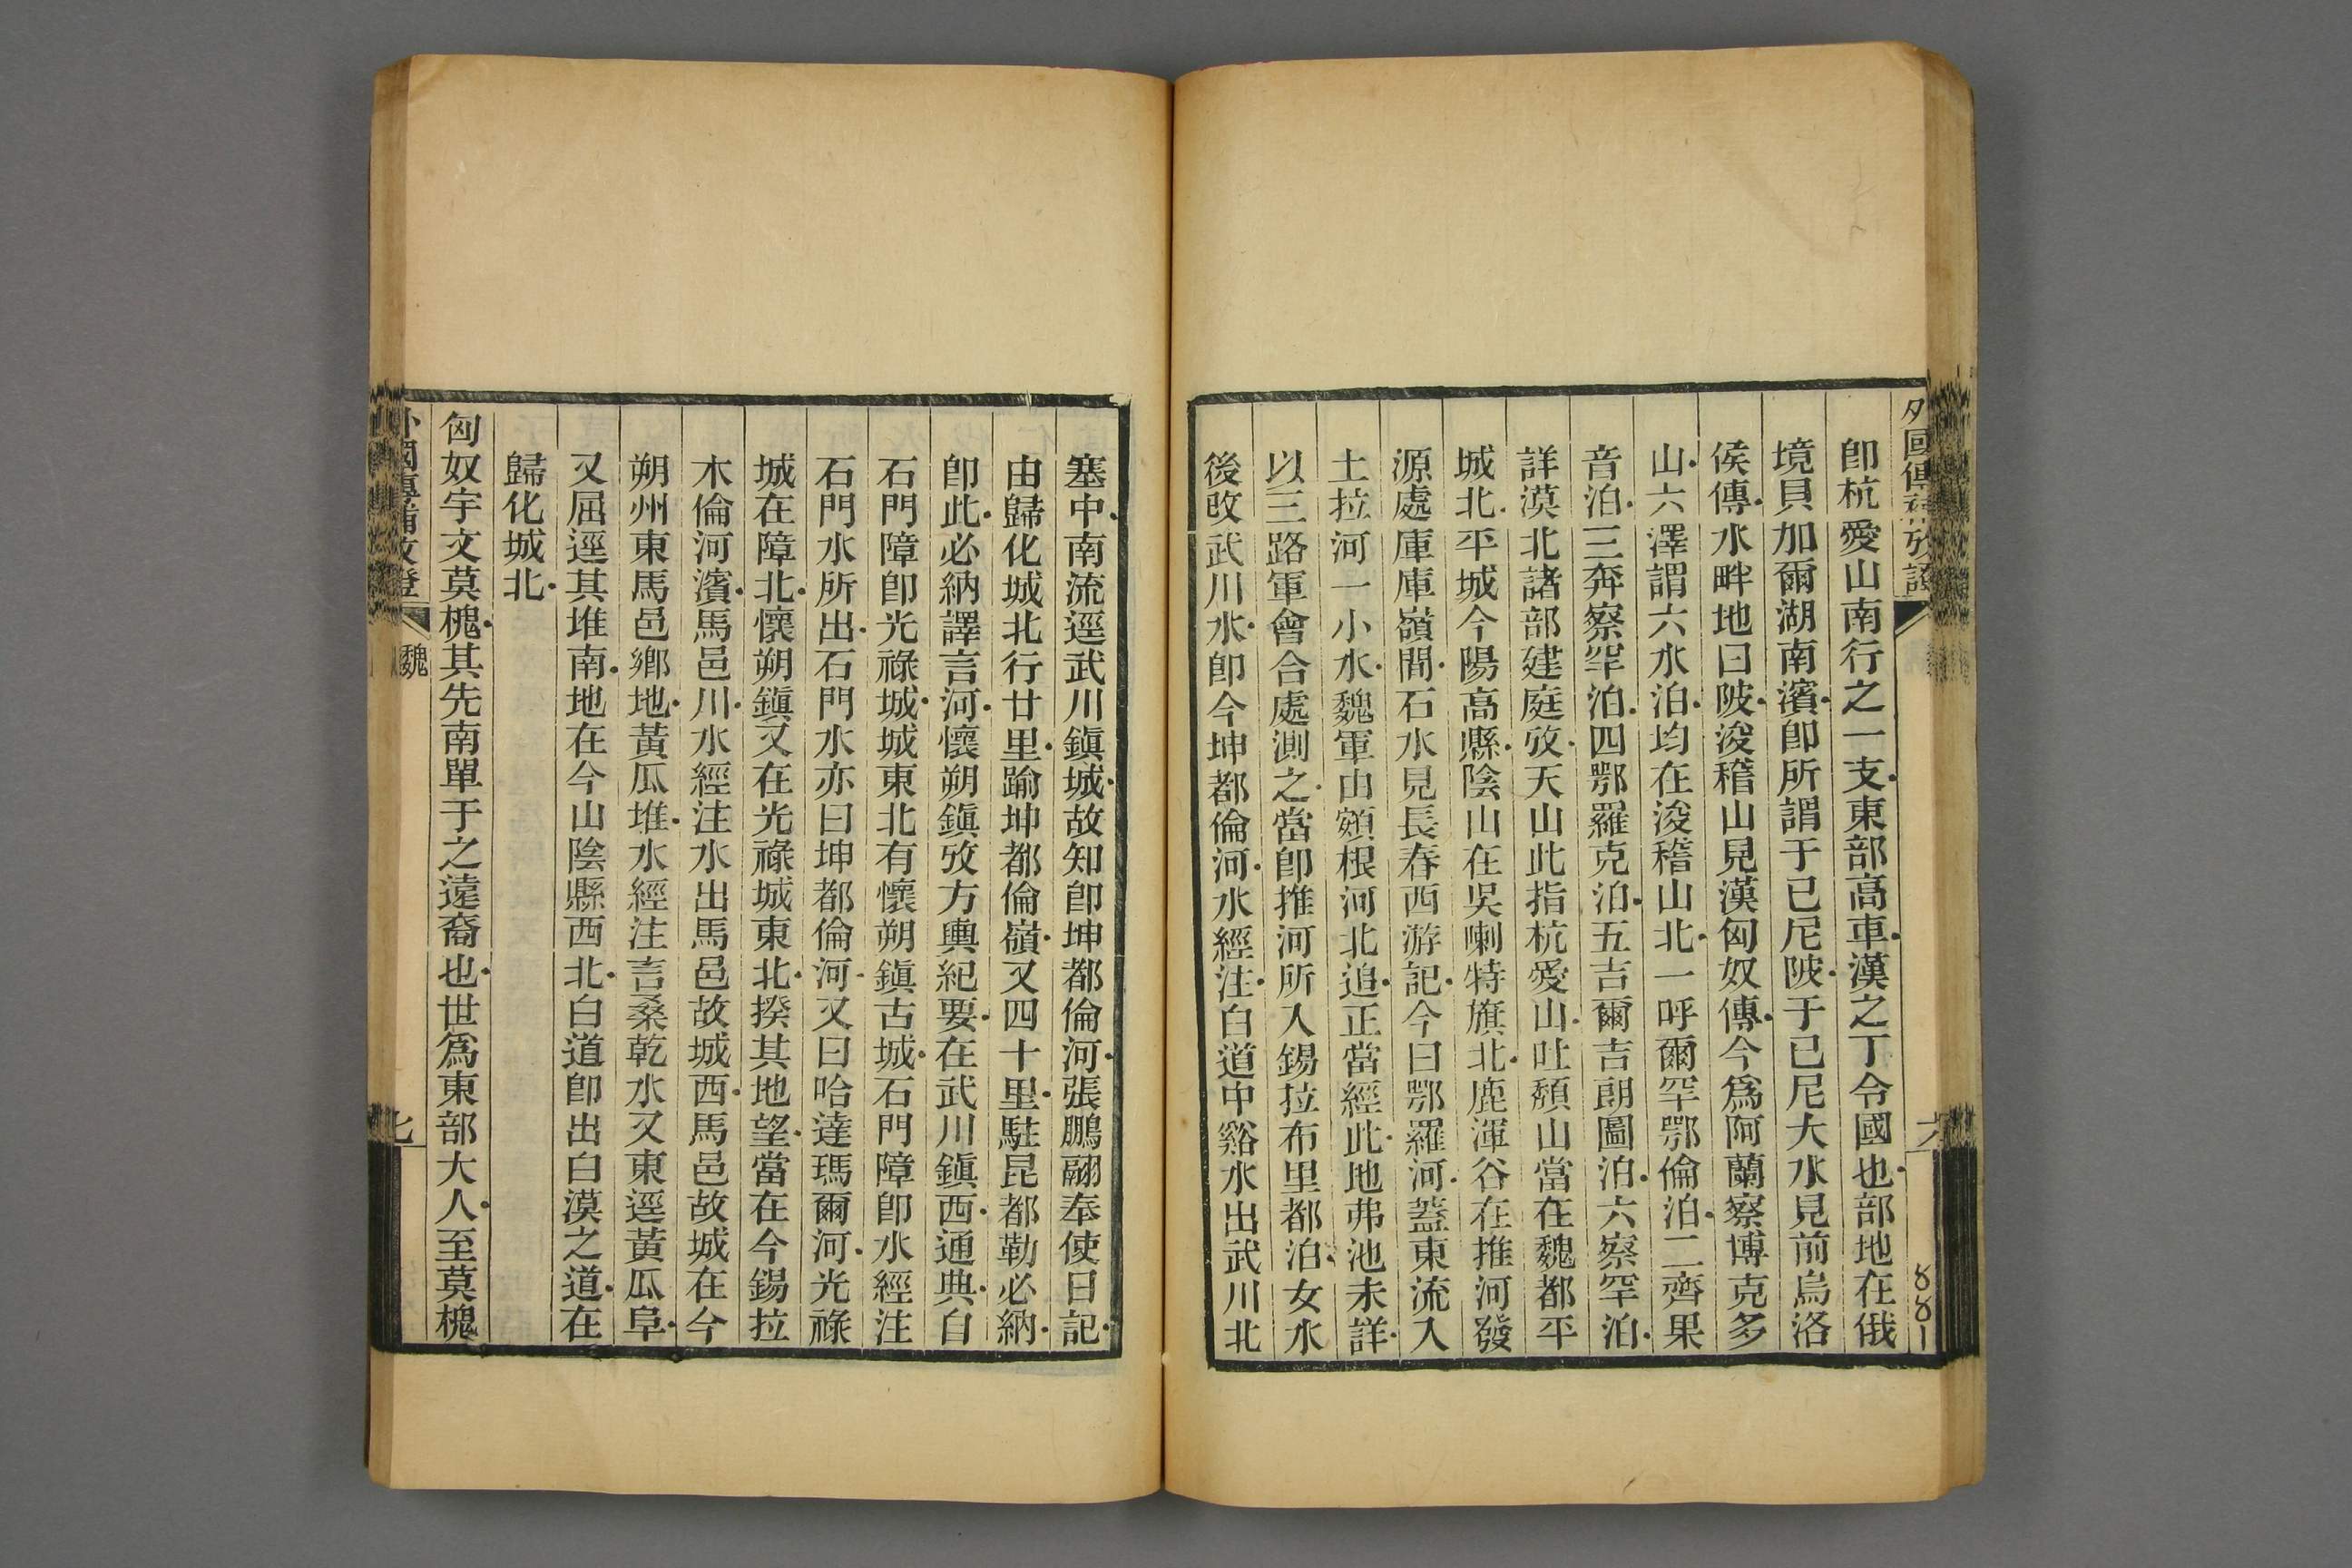 即杭愛山南行之一支東部高車漢之丁令國也部地在俄
境貝加爾湖南濱即所謂于巳尼陂于巳尼大水見前烏洛
侯傳水畔地曰陂浚稽山見漢匈奴傳今爲阿蘭察博克多
山六澤謂六水泊均在浚稽山北一呼爾罕鄂倫泊二齊果
音泊三奔察罕泊四鄂羅克泊五吉爾吉朗圖泊六察罕泊
詳漠北諸部建庭攷天山此指杭愛山吐頹山當在魏都平
城北平城今陽高縣陰山在吳喇特旗北鹿渾谷在推河發
源處庫庫嶺間石水見長春西游記今曰鄂羅河蓋東流入
土拉河一小水魏軍由頞根河北追正當經此地弗池未詳
以三路軍會合處測之當即推河所入錫拉布里都泊女水
後改武川水即今坤都倫河水經注白道中谿水出武川北
塞中南流逕武川鎭城故知即坤都倫河張鵬翮奉使日記
由歸化城北行廿里踰坤都倫嶺又四十里駐昆都勒必納
即此必納譯言河懷朔鎭攷方輿紀要在武川鎭西通典自
石門障即光祿城城東北有懷朔鎭古城石門障即水經注
石門水所出石門水亦曰坤都倫河又曰哈達瑪爾河光祿
城在障北懷朔鎭又在光祿城東北揆其地望當在今錫拉
木倫河濱馬邑川水經注水出馬邑故城西馬邑故城在今
朔州東馬邑鄉地黃瓜堆水經注言桑乾水又東逕黃瓜阜
又屈逕其堆南地在今山陰縣西北白道即出白漠之道在
歸化城北
匈奴宇文莫槐其先南單于之遠裔也世爲東部大人至莫槐
魏